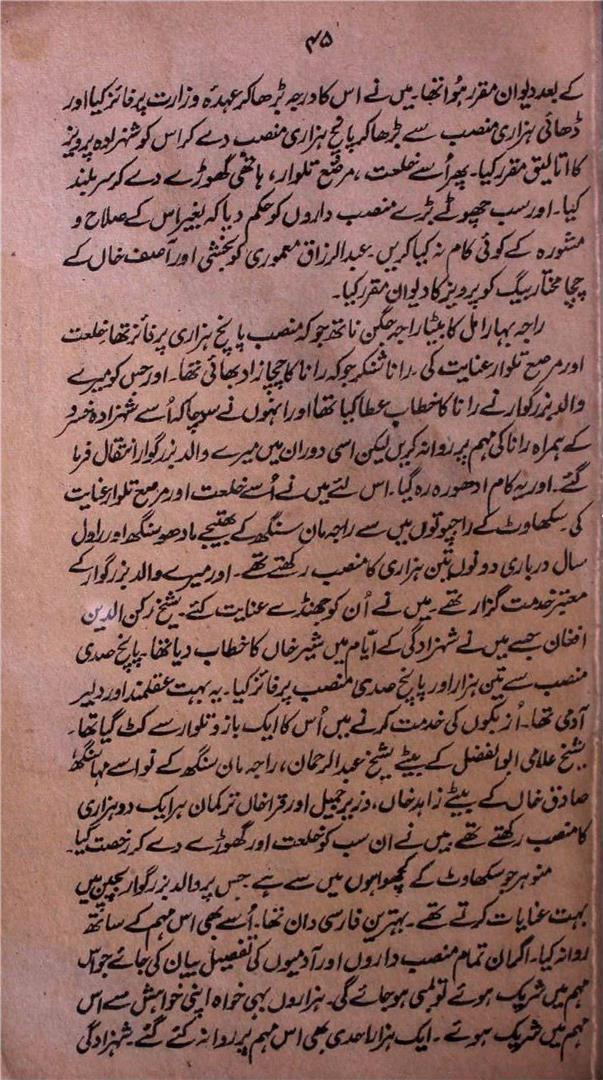 ۴۵
کے بعد دیوان مقرر ہُوا تھا۔ میں نے اس کا درجہ بڑھا کر عہدہ وزارت پر فائز کیا اور
ڈھائی ہزاری منصب سے بڑھا کر پانچ ہزاری منصب دے کر اس کو شہزادہ پرویز
کا اتالیق مقرر کیا۔ پھر اُسے خلعت، مرصّع تلوار، ہاتھی گھوڑے دے کر سر بلند
کیا۔ اور سب چھوٹے بڑے منصب داروں کو حکم دیا کہ بغیر اس کے صلاح و
مشورہ کے کوئی کام نہ کیا کریں۔ عبدالرزاق معموری کو بخشی اور آصف خاں کے
چچا مختار بیگ کو پرویز کا دیوان مقرر کیا۔
راجہ بہارا مل کا بیٹا راجہ جگن ناتھ جو کہ منصب پانچ ہزاری پر فائز تھا خلعت
اور مرصع تلوار عنایت کی۔ رانا شنکر جو کہ رانا کا چچا زاد بھائی تھا۔ اور جس کو میرے
والد بزرگوار نے رانا کا خطاب عطا کیا تھا اور انہوں نے سوچا کہ اُسے شہزادہ خسرو
کے ہمراہ رانا کی مہم پر روانہ کریں لیکن اسی دوران میں میرے والد بزرگوار انتقال فرما
گئے۔ اور یہ کام ادھورہ رہ گیا۔ اس لئے میں نے اُسے خلعت اور مرصع تلوار عنایت
کی۔ سکھاوٹ کے راجپوتوں میں سے راجہ مان سنگھ کے بھتیجے مادھو سنگھ اور راول
سال درباری دونوں تین ہزاری کا منصب رکھتے تھے۔ اور میرے والد بزرگوار کے
معتبر خدمت گزار تھے۔ میں نے اُن کو جھنڈے عنایت کئے۔ شیخ رکن الدین
افغان جسے میں نے شہزادگی کے ایّام میں شیر خاں کا خطاب دیا تھا۔ پانچ صدی
منصب سے تین ہزار اور پانچ صدی منصب پر فائز کیا۔ یہ بہت عقلمند اور دلیر
آدمی تھا۔ اُزبکوں کی خدمت کرنے میں اُس کا ایک بازو تلوار سے کٹ گیا تھا۔
شیخ علامی ابوالفضل کے بیٹے شیخ عبدالرحمان، راجہ مان سنگھ کے نواسے مہا سنگھ
صادق خاں کے بیٹے زاہد خاں، وزیر جمیل اور قرا خاں ترکمان ہر ایک دو ہزاری
کا منصب رکھتے تھے۔ میں نے ان سب کو خلعت اور گھوڑے دے کر رخصت کیا۔
منوہر جو سکھاوٹ کے کچھواہوں میں سے ہے جس پر والد بزرگوار بچپن میں
بہت عنایات کرتے تھے۔ بہترین فارسی دان تھا۔ اُسے بھی اس مہم کے ساتھ
روانہ کیا۔ اگر ان تمام منصب داروں اور آدمیوں کی تفصیل بیان کی جائے جو اس
مہم میں شریک ہوئے تو لمبی ہو جائے گی۔ ہزاروں بہی خواہ اپنی خواہش سے اس
مہم میں شریک ہوئے۔ ایک ہزار احدی بھی اس مہم پر روانہ کئے گئے۔ شہزادگی